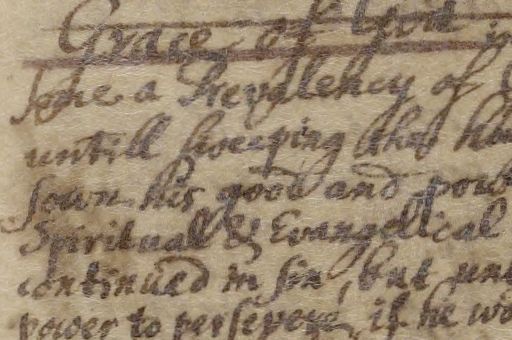 Grace of God
a Prevalency of
untill keeping the
sown his good and
Spirituall & Evangelical
continued in sin, but
power to persevere, if he